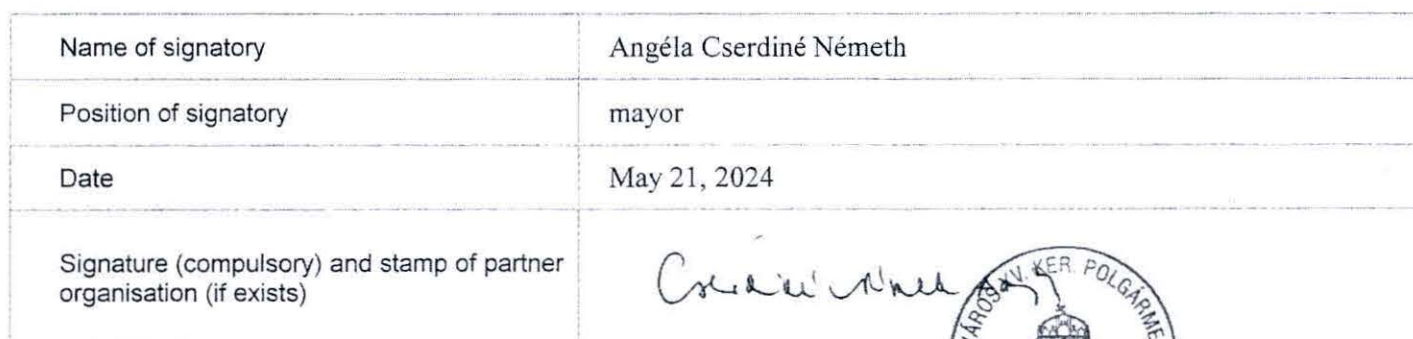 Name of signatory
Angéla Cserdiné Németh
Position of signatory
mayor
Date
May 21, 2024
Signature (compulsory) and stamp of partner
organisation (if exists)
Cserdiné Németh
XV. KER. POLGÁRME